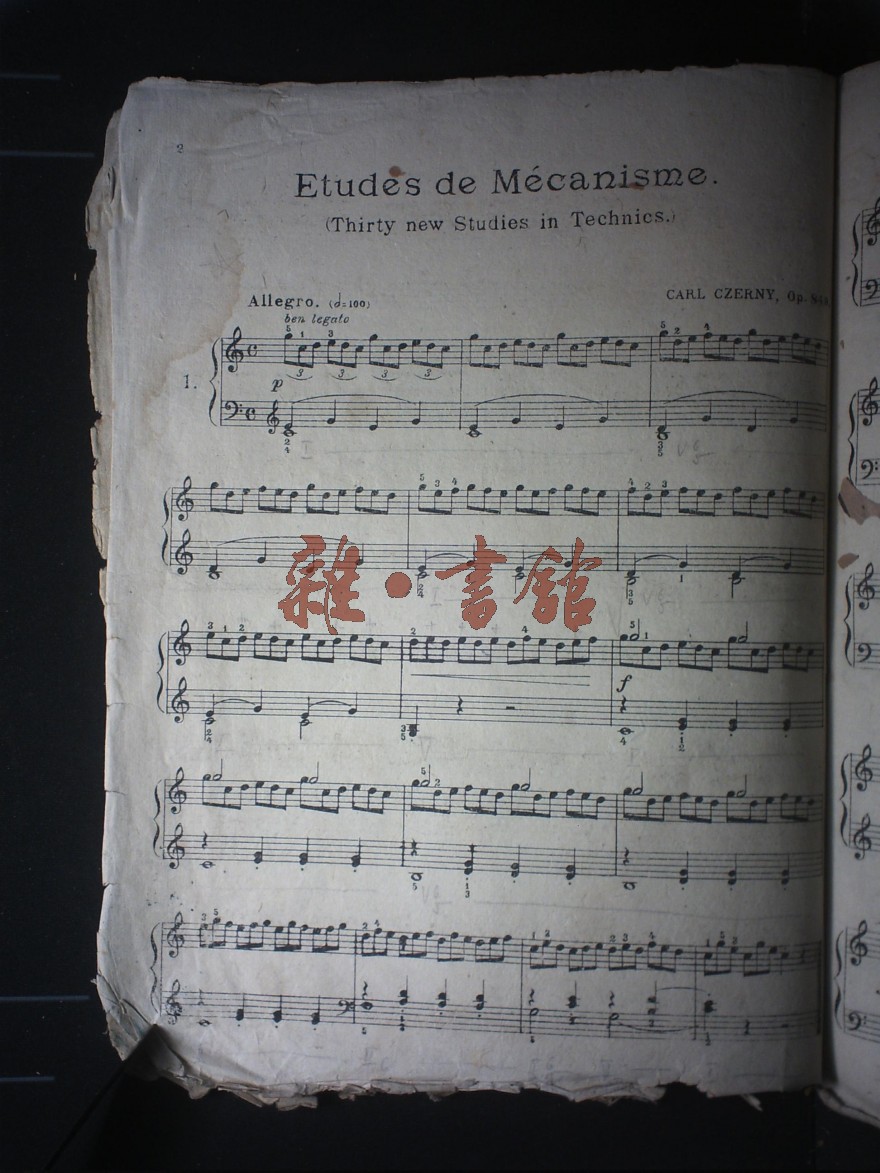 2
Etudes de Mécanisme.
(Thirty new Studies in Technics.)
Allegro. (𝅗𝅥=100)
CARL CZERNY, Op.
ben legato
1.
p
雜·書館
f